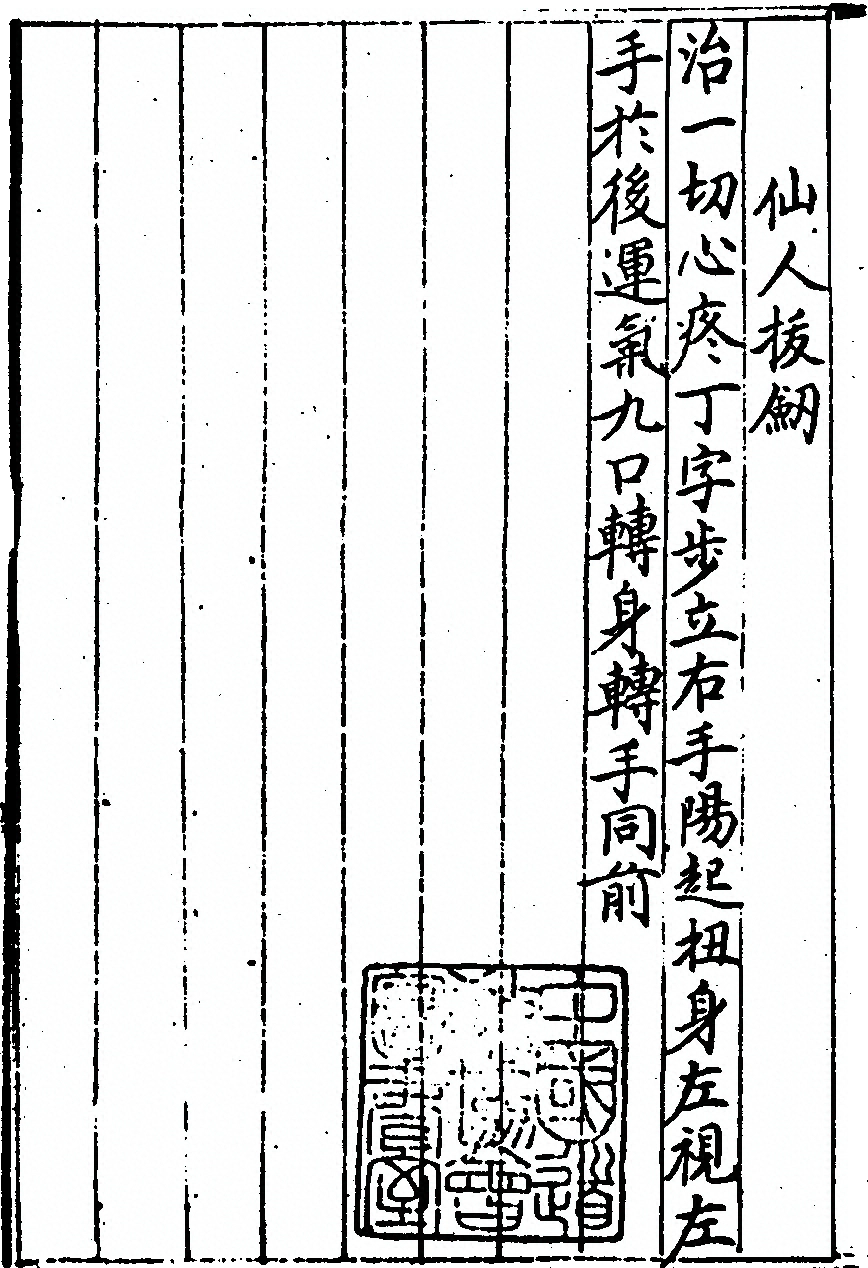 仙人拔劔
治一切心疼丁字步立右手陽起扭身左視左
手於後運氣九口轉身轉手同前